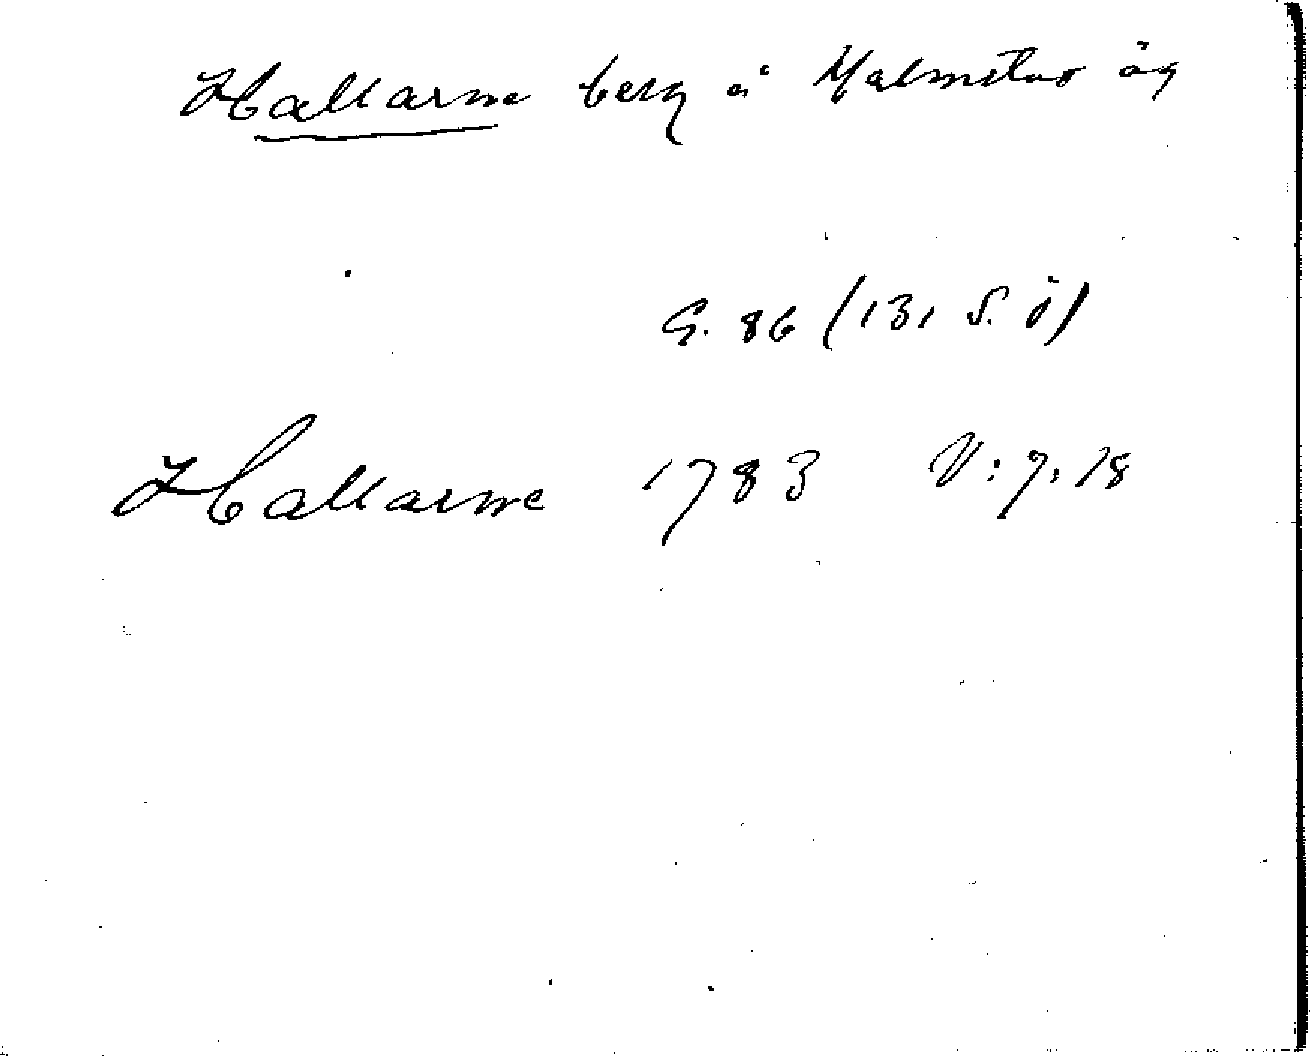 Hallarne berg å Malmstus äg
G. 86 (131 S. ö)
Hallarne 1783 V:7:18